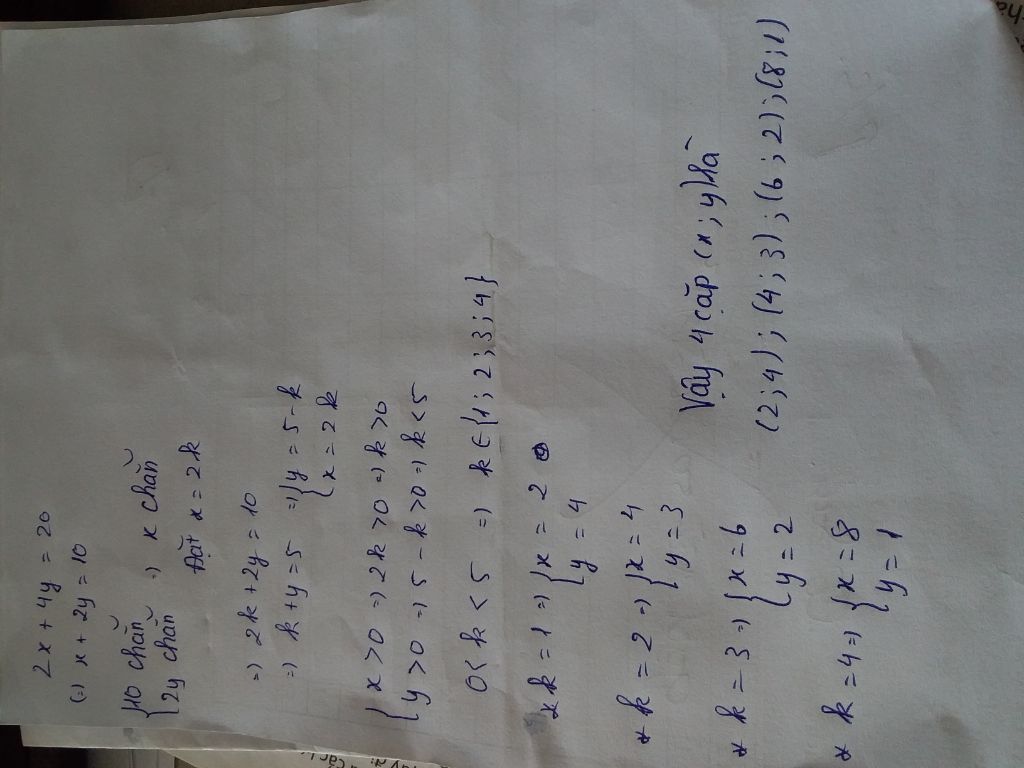 2x + 4y = 20
(=) x + 2y = 10
{10 chẵn
{2y chẵn => x chẵn
Đặt x = 2k
=) 2k + 2y = 10
=) k + y = 5 =) {y = 5 - k
{x = 2k
{x > 0 =) 2k > 0 =) k > 0
{y > 0 =) 5 - k > 0 =) k < 5
0 < k < 5 =) k ∈ {1; 2; 3; 4}
* k = 1 =) {x = 2
{y = 4
* k = 2 =) {x = 4
{y = 3
* k = 3 =) {x = 6
{y = 2
* k = 4 =) {x = 8
{y = 1
Vậy 4 cặp (x; y) là
(2; 4); (4; 3); (6; 2); (8; 1)